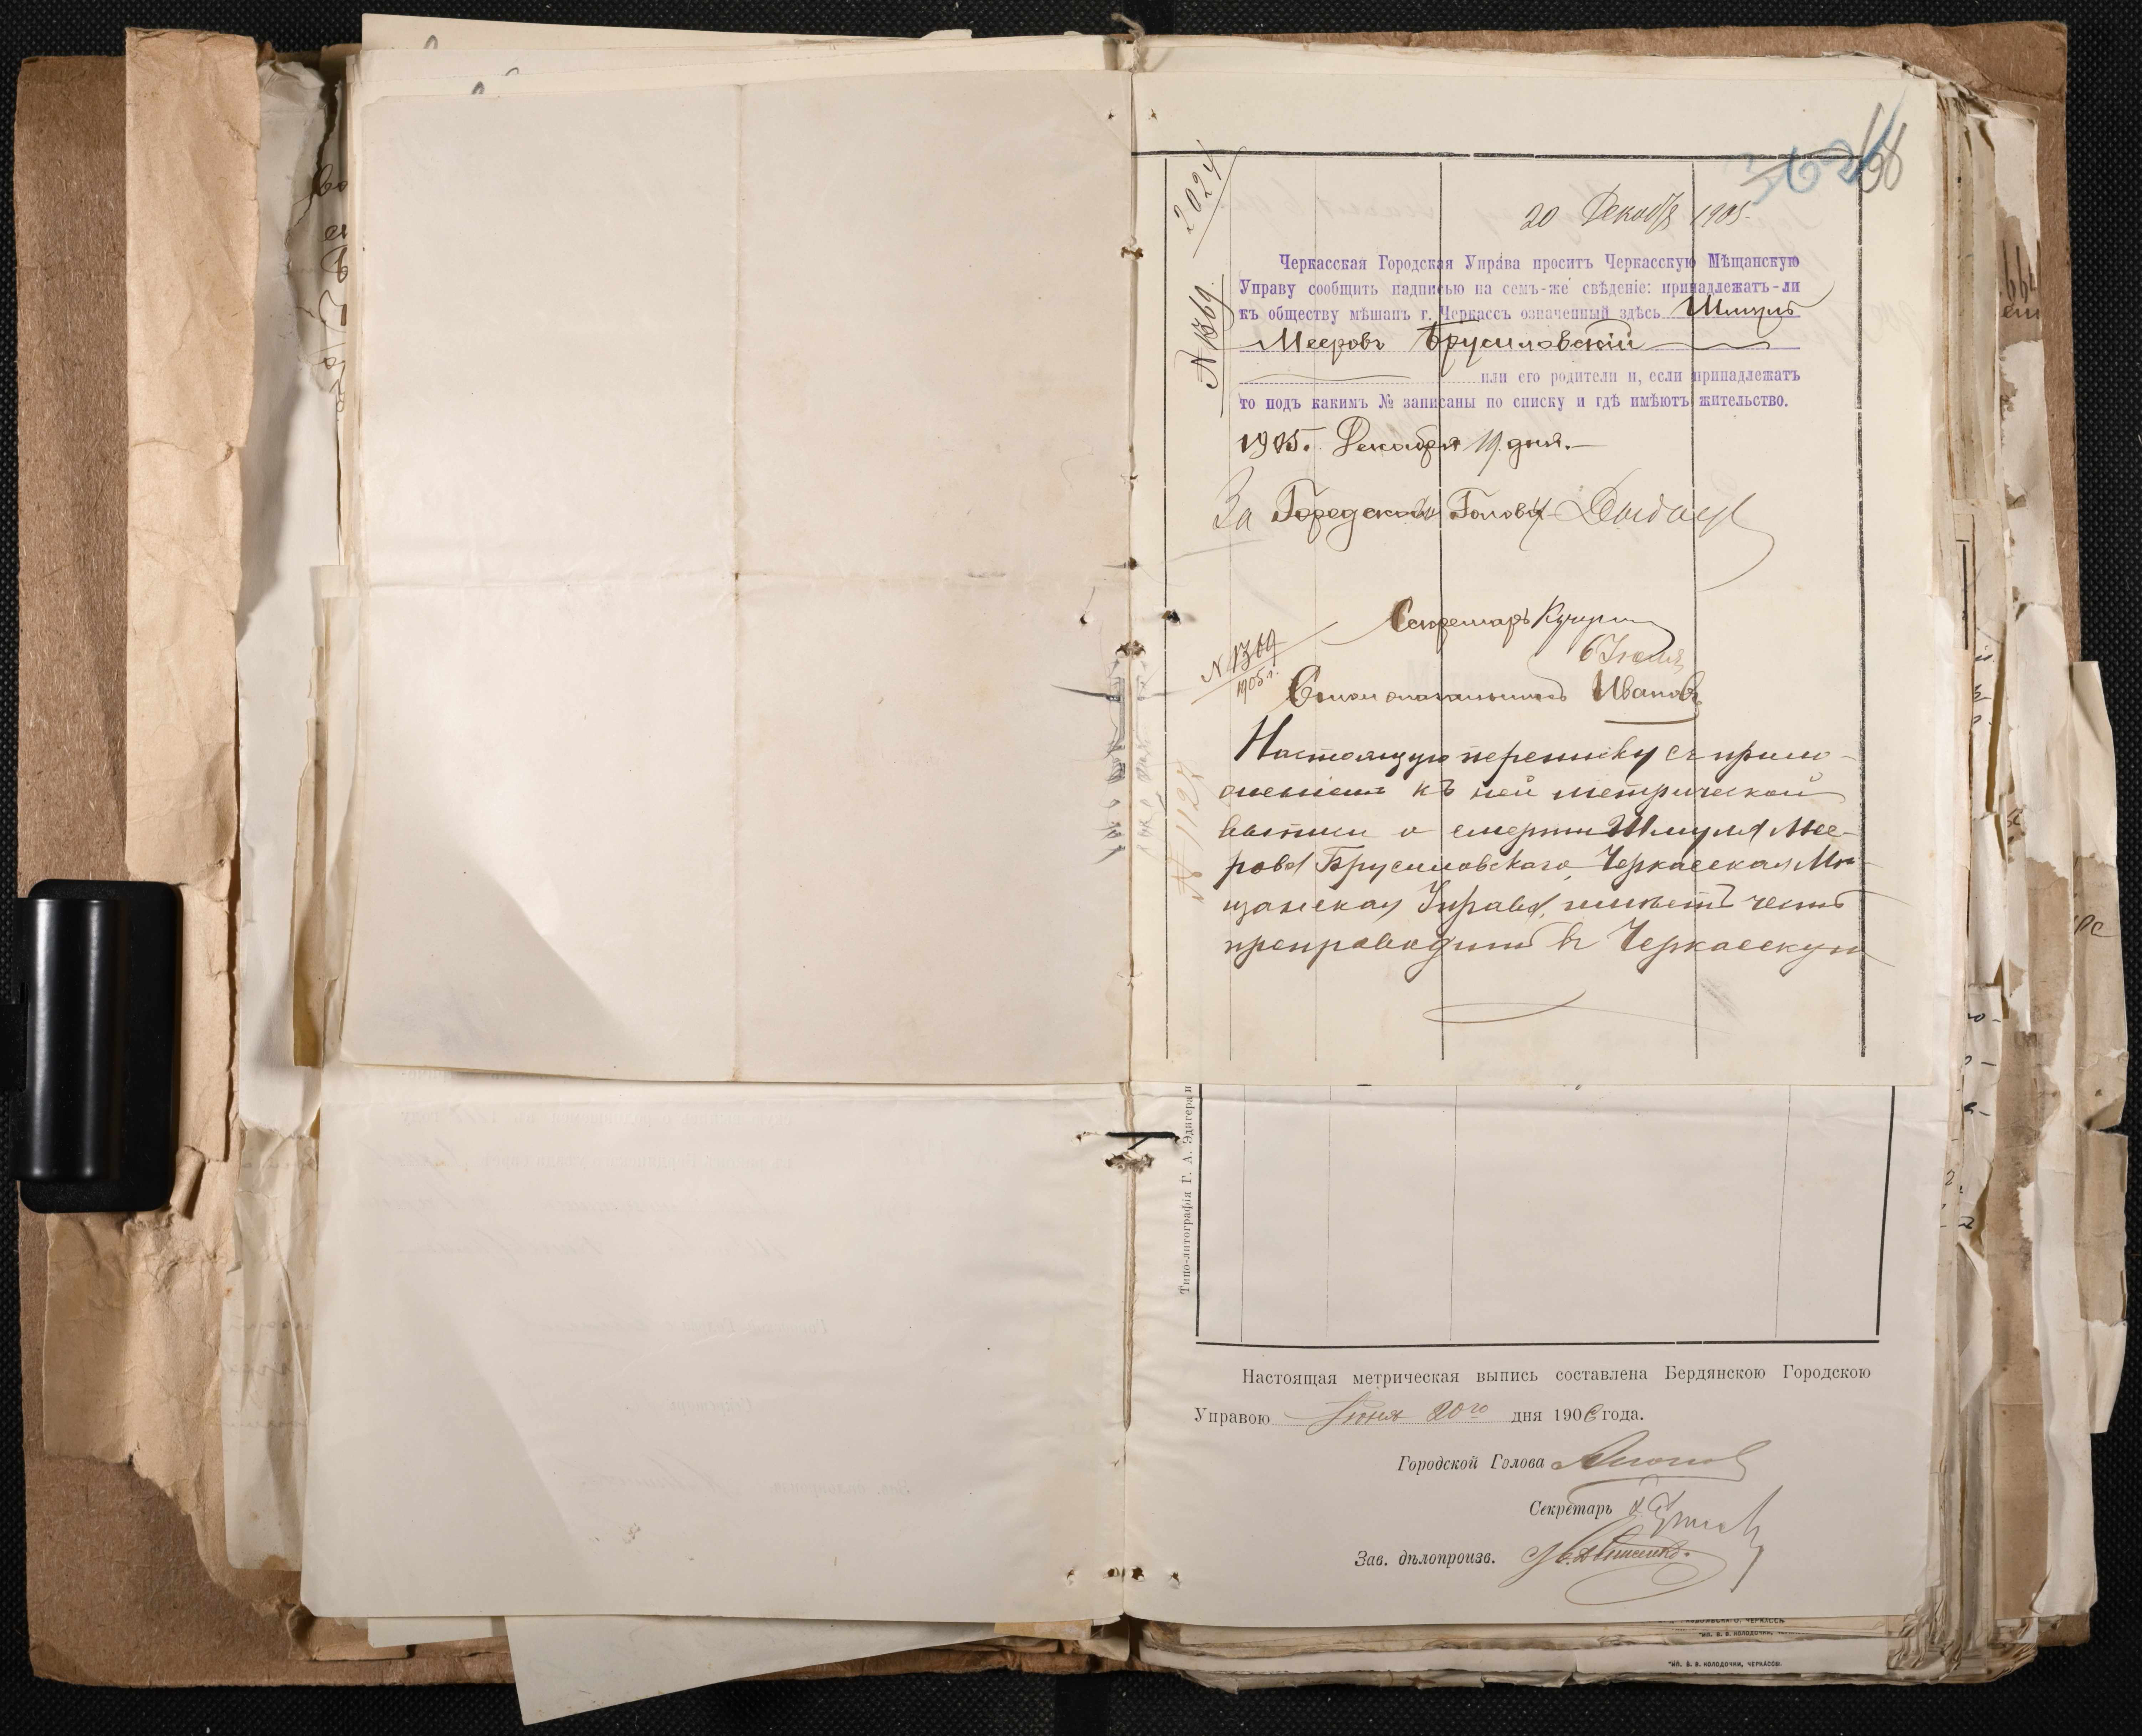 20 Декабря 1905.
2024
№ 1369.
Черкасская Городская Управа проситъ Черкасскую Мѣщанскую
Управу сообщить надписью на семъ-же свѣдѣніе: принадлежатъ-ли
къ обществу мѣщанъ г. Черкассъ означенный здѣсь Шмуль
Мееровъ Брусиловскій
или его родители и, если принадлежатъ
то подъ какимъ № записаны по списку и гдѣ имѣютъ жительство.
1905. Декабря 19 дня.
За Городского Голову
Секретарь
6 Іюля
№ 1369
1905 г.
Столоначальникъ Ивановъ
Настоящую переписку съ прило-
женіемъ къ ней метрической
выписи о смерти Шмуля Мее-
рова Брусиловскаго, Черкасская Мѣ-
щанская Управа, имѣетъ честь
препроводить въ Черкасскую
№ 1127
Типо-литографія Г. А. Эдигера и
Настоящая метрическая выпись составлена Бердянскою Городскою
Управою Іюня 20го дня 1906 года.
Городской Голова
Секретарь
Зав. дѣлопроизв.
ТИП. В. В. КОЛОДОЧКИ, ЧЕРКАССЫ.